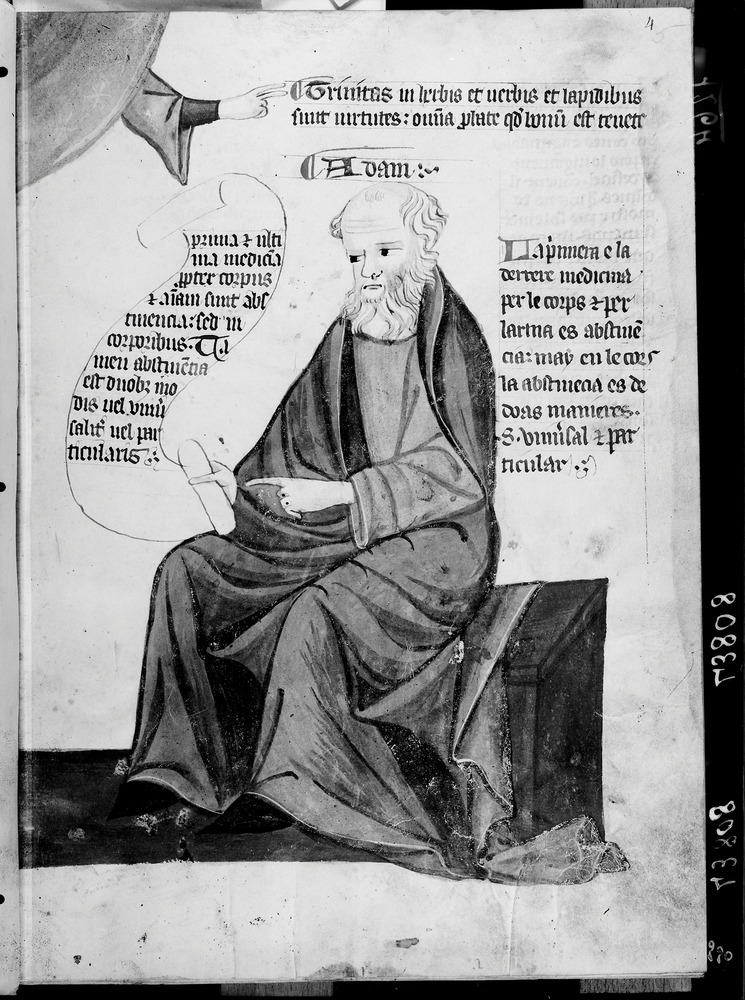 4
Trinitas in herbis et verbis et lapidibus
sunt virtutes: omnia plate qd bonu est tenete
Adam :~
prima ⁊ ulti
ma medicia
ꝓpter corpus
⁊ aīam sunt abs
tinencia: sed in
corporibus. Ta
men abstinēcia
est duobȝ mo
dis uel vniu
salit̄ uel par
ticularis :~
La pͥmera e la
derrere medicina
per le corps ⁊ per
larma es abstinē
cia: may en le cors
la abstinecia es de
doas maneres.
S. vniuͥsal ⁊ par
ticular :~
1264
73808
73808